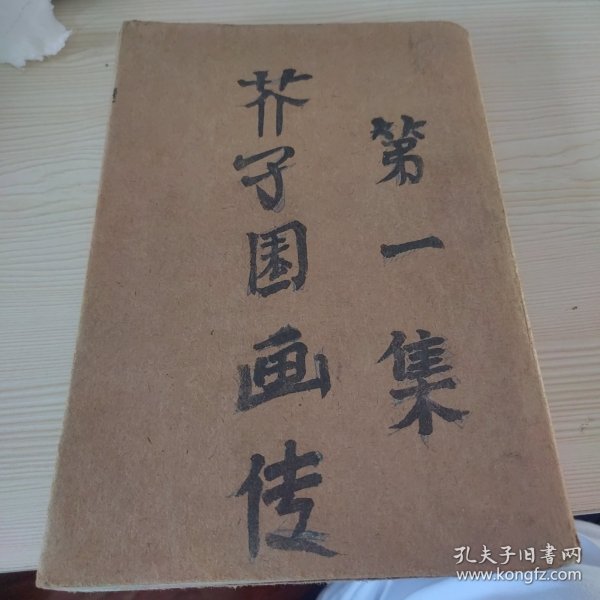 第一集
芥子园画传
孔夫子旧書网
www.kongfz.com